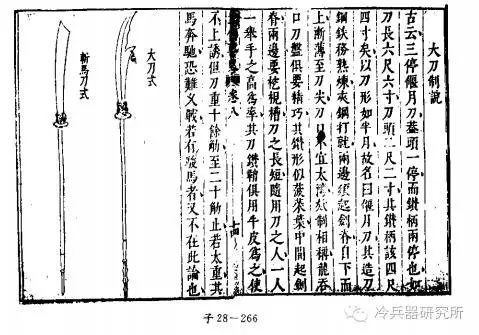 大刀制說
古云三停偃月刀蓋頭一停而鑚柄兩停也如
刀長六尺六寸刀頭二尺二寸其鑚柄該四尺
四寸矣以刀形如半月故名曰偃月刀其造刀
鋼鉄務熟煉夾鋼打就兩邊須起劍脊自下而
上漸薄至刀尖刀口不宜太濶紙制相稱龍吞
口刀盤俱要精巧其鑚形似菠菜葉中間起劍
脊兩邊要挖視槽刀之長短隨用刀之人一人
一乘手之高爲率其刀鑚鞘俱用牛皮爲之使
不上誘但刀重十餘觔至二十觔止若太重其
馬奔馳恐難久戰若有駿馬者又不在此論也
卷八
大刀式
斬馬刀式
子28—266
冷兵器研究所